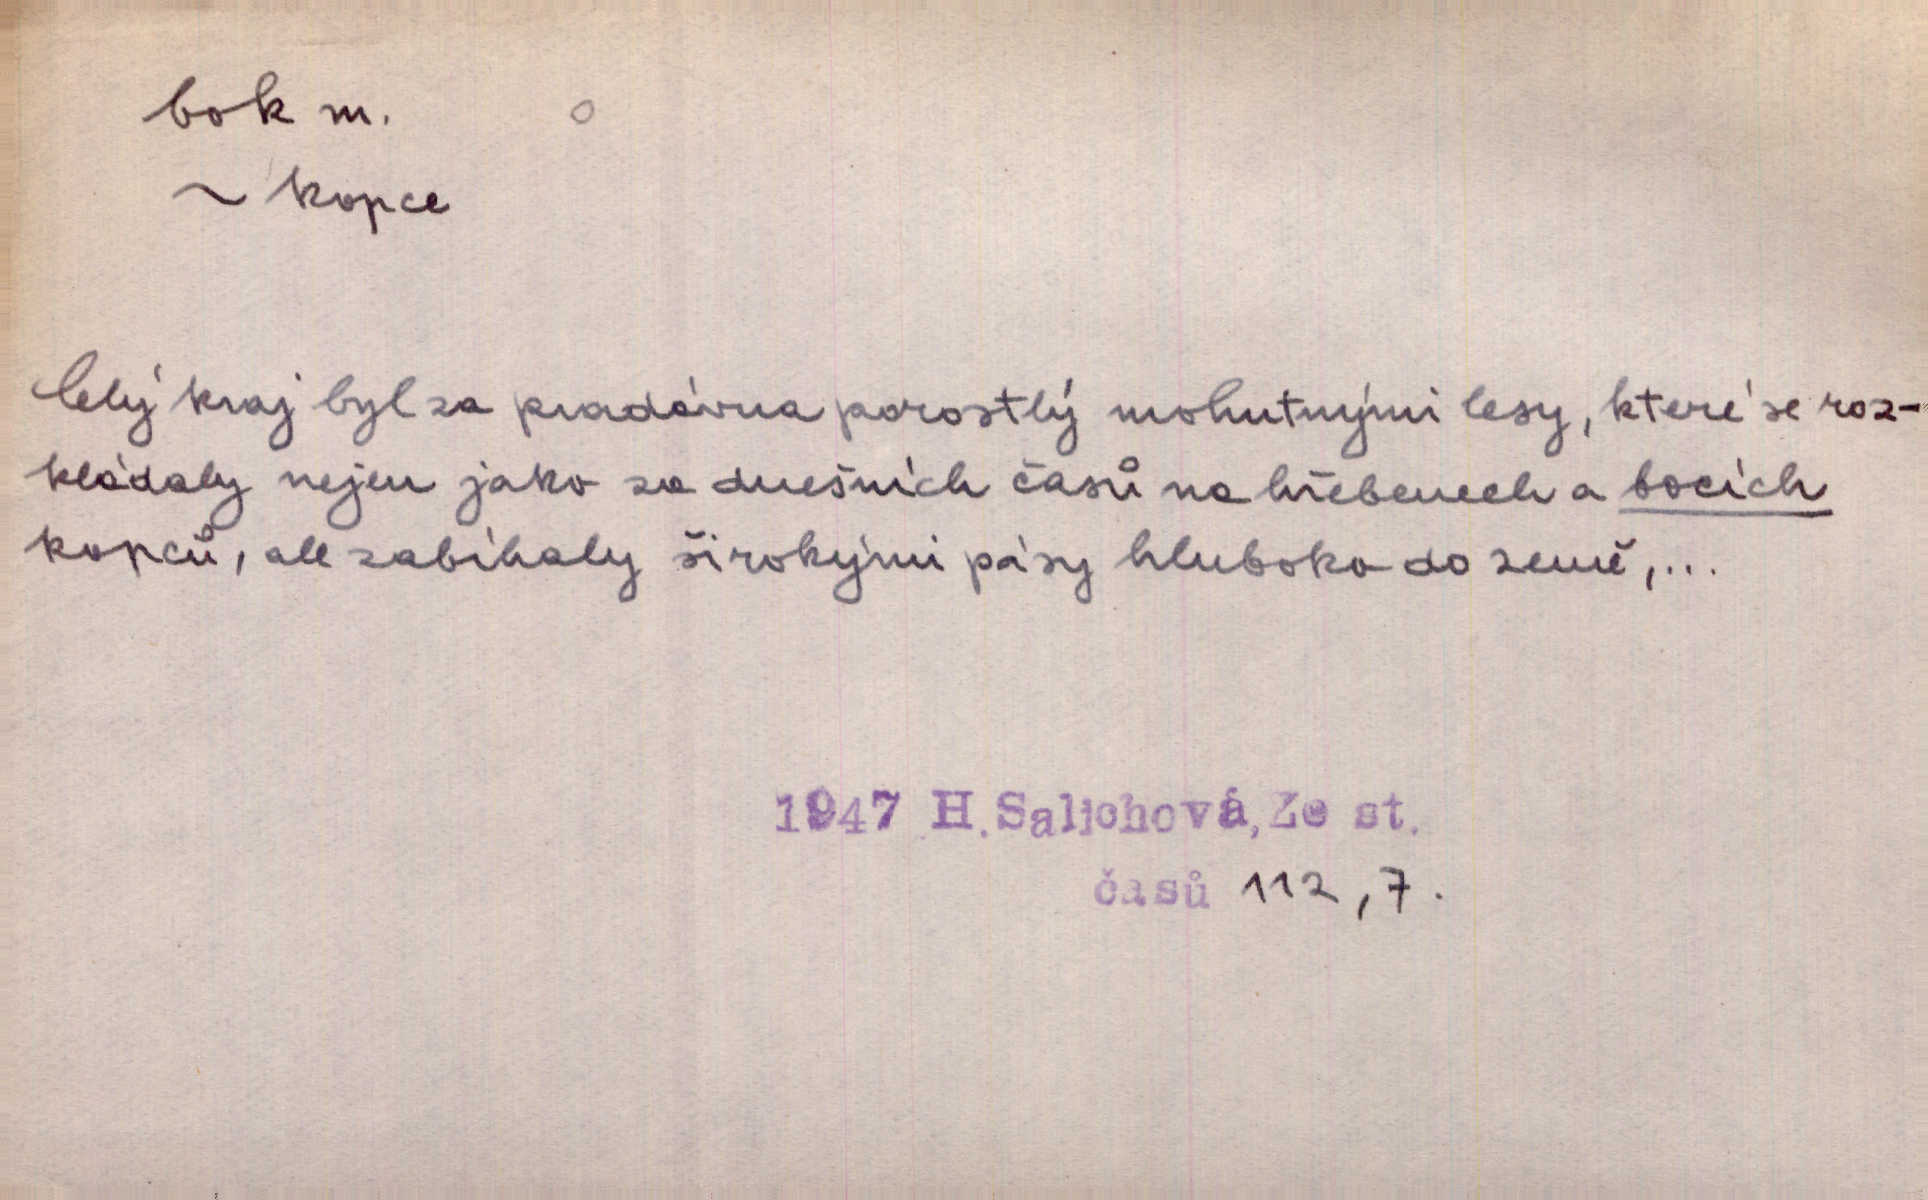 bok m. o
~ kopce
Celý kraj byl za pradávna porostlý mohutnými lesy, které se roz-
kládaly nejen jako za dnešních časů na hřebenech a bocích
kopců, ale zabíhaly širokými pásy hluboko do země,...
1947 H.Salichová,Ze st.
časů 112,7.